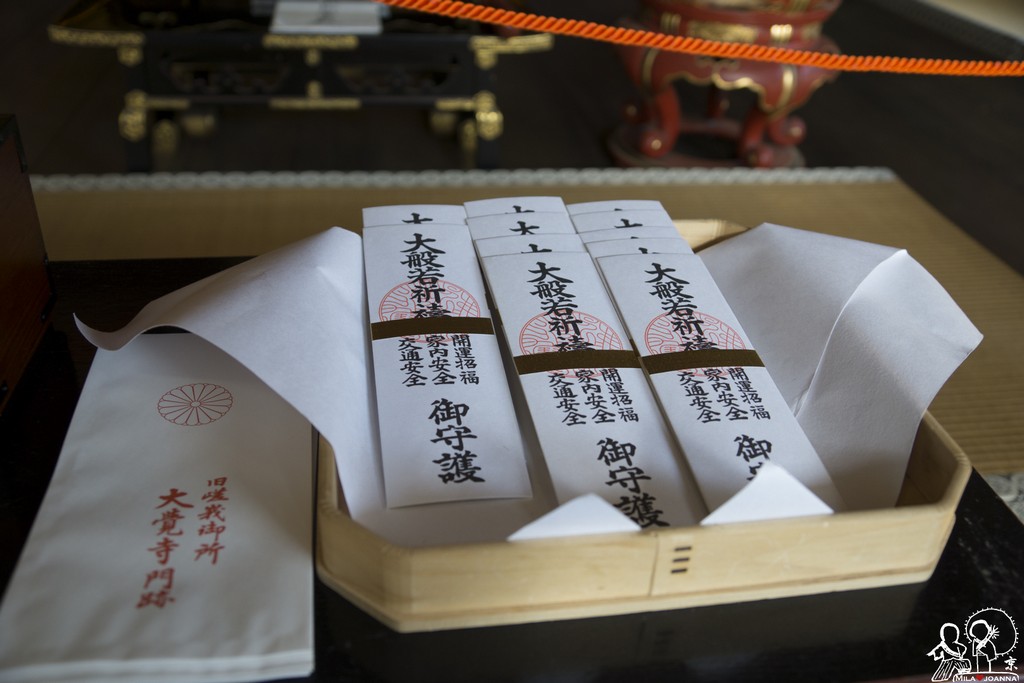 大般若祈祷
開運招福
家内安全
交通安全
御守護
大般若祈祷
開運招福
家内安全
交通安全
御守護
大般若祈祷
開運招福
家内安全
交通安全
御守
旧嵯峩御所
大覺寺門跡
京
MILA JOANNA